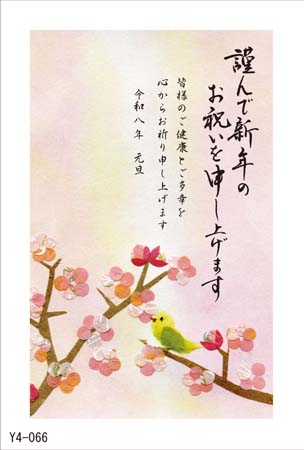 謹んで新年の
お祝いを申し上げます
皆様のご健康とご多幸を
心からお祈り申し上げます
令和八年 元旦
Y4-066